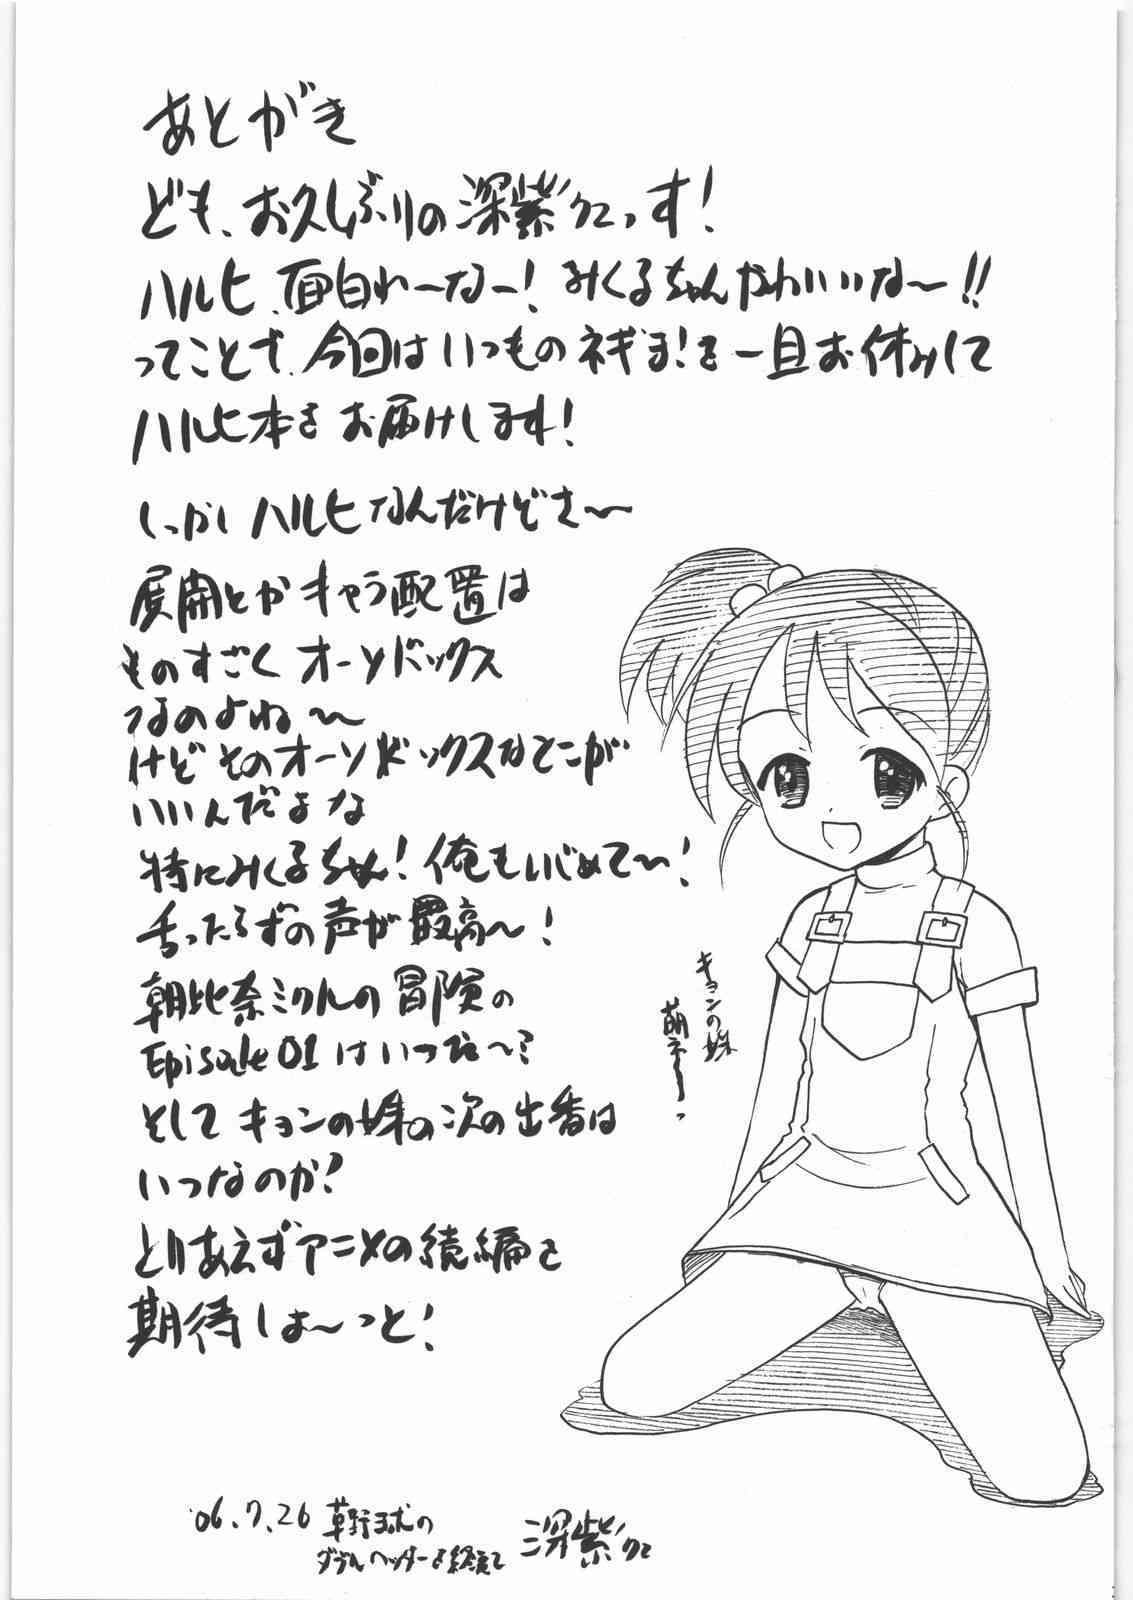 あとがき
ども、お久しぶりの深紫クこっす!
ハルヒ、面白れーなー!みくるちゃんかわいいな〜!!
ってことで、今回はいつものネギま!を一旦お休みして
ハルヒ本をお届けします!
しっかしハルヒなんだけどさ〜
展開とかキャラ配置は
ものすごくオーソドックス
なのよね〜
けどそのオーソドックスなとこが
いいんだよな
特にみくるちゃん!俺もいじめて〜!
舌ったらずの声が最高〜!
朝比奈ミクルの冒険の
Episode01はいつだ〜?
そしてキョンの妹の次の出番は
いつなのか?
とりあえずアニメの続編を
期待しよ〜っと!
キョンの妹
萌えーっ
'06.7.26 草野球の
ダブルヘッダーを経て 深紫クこ